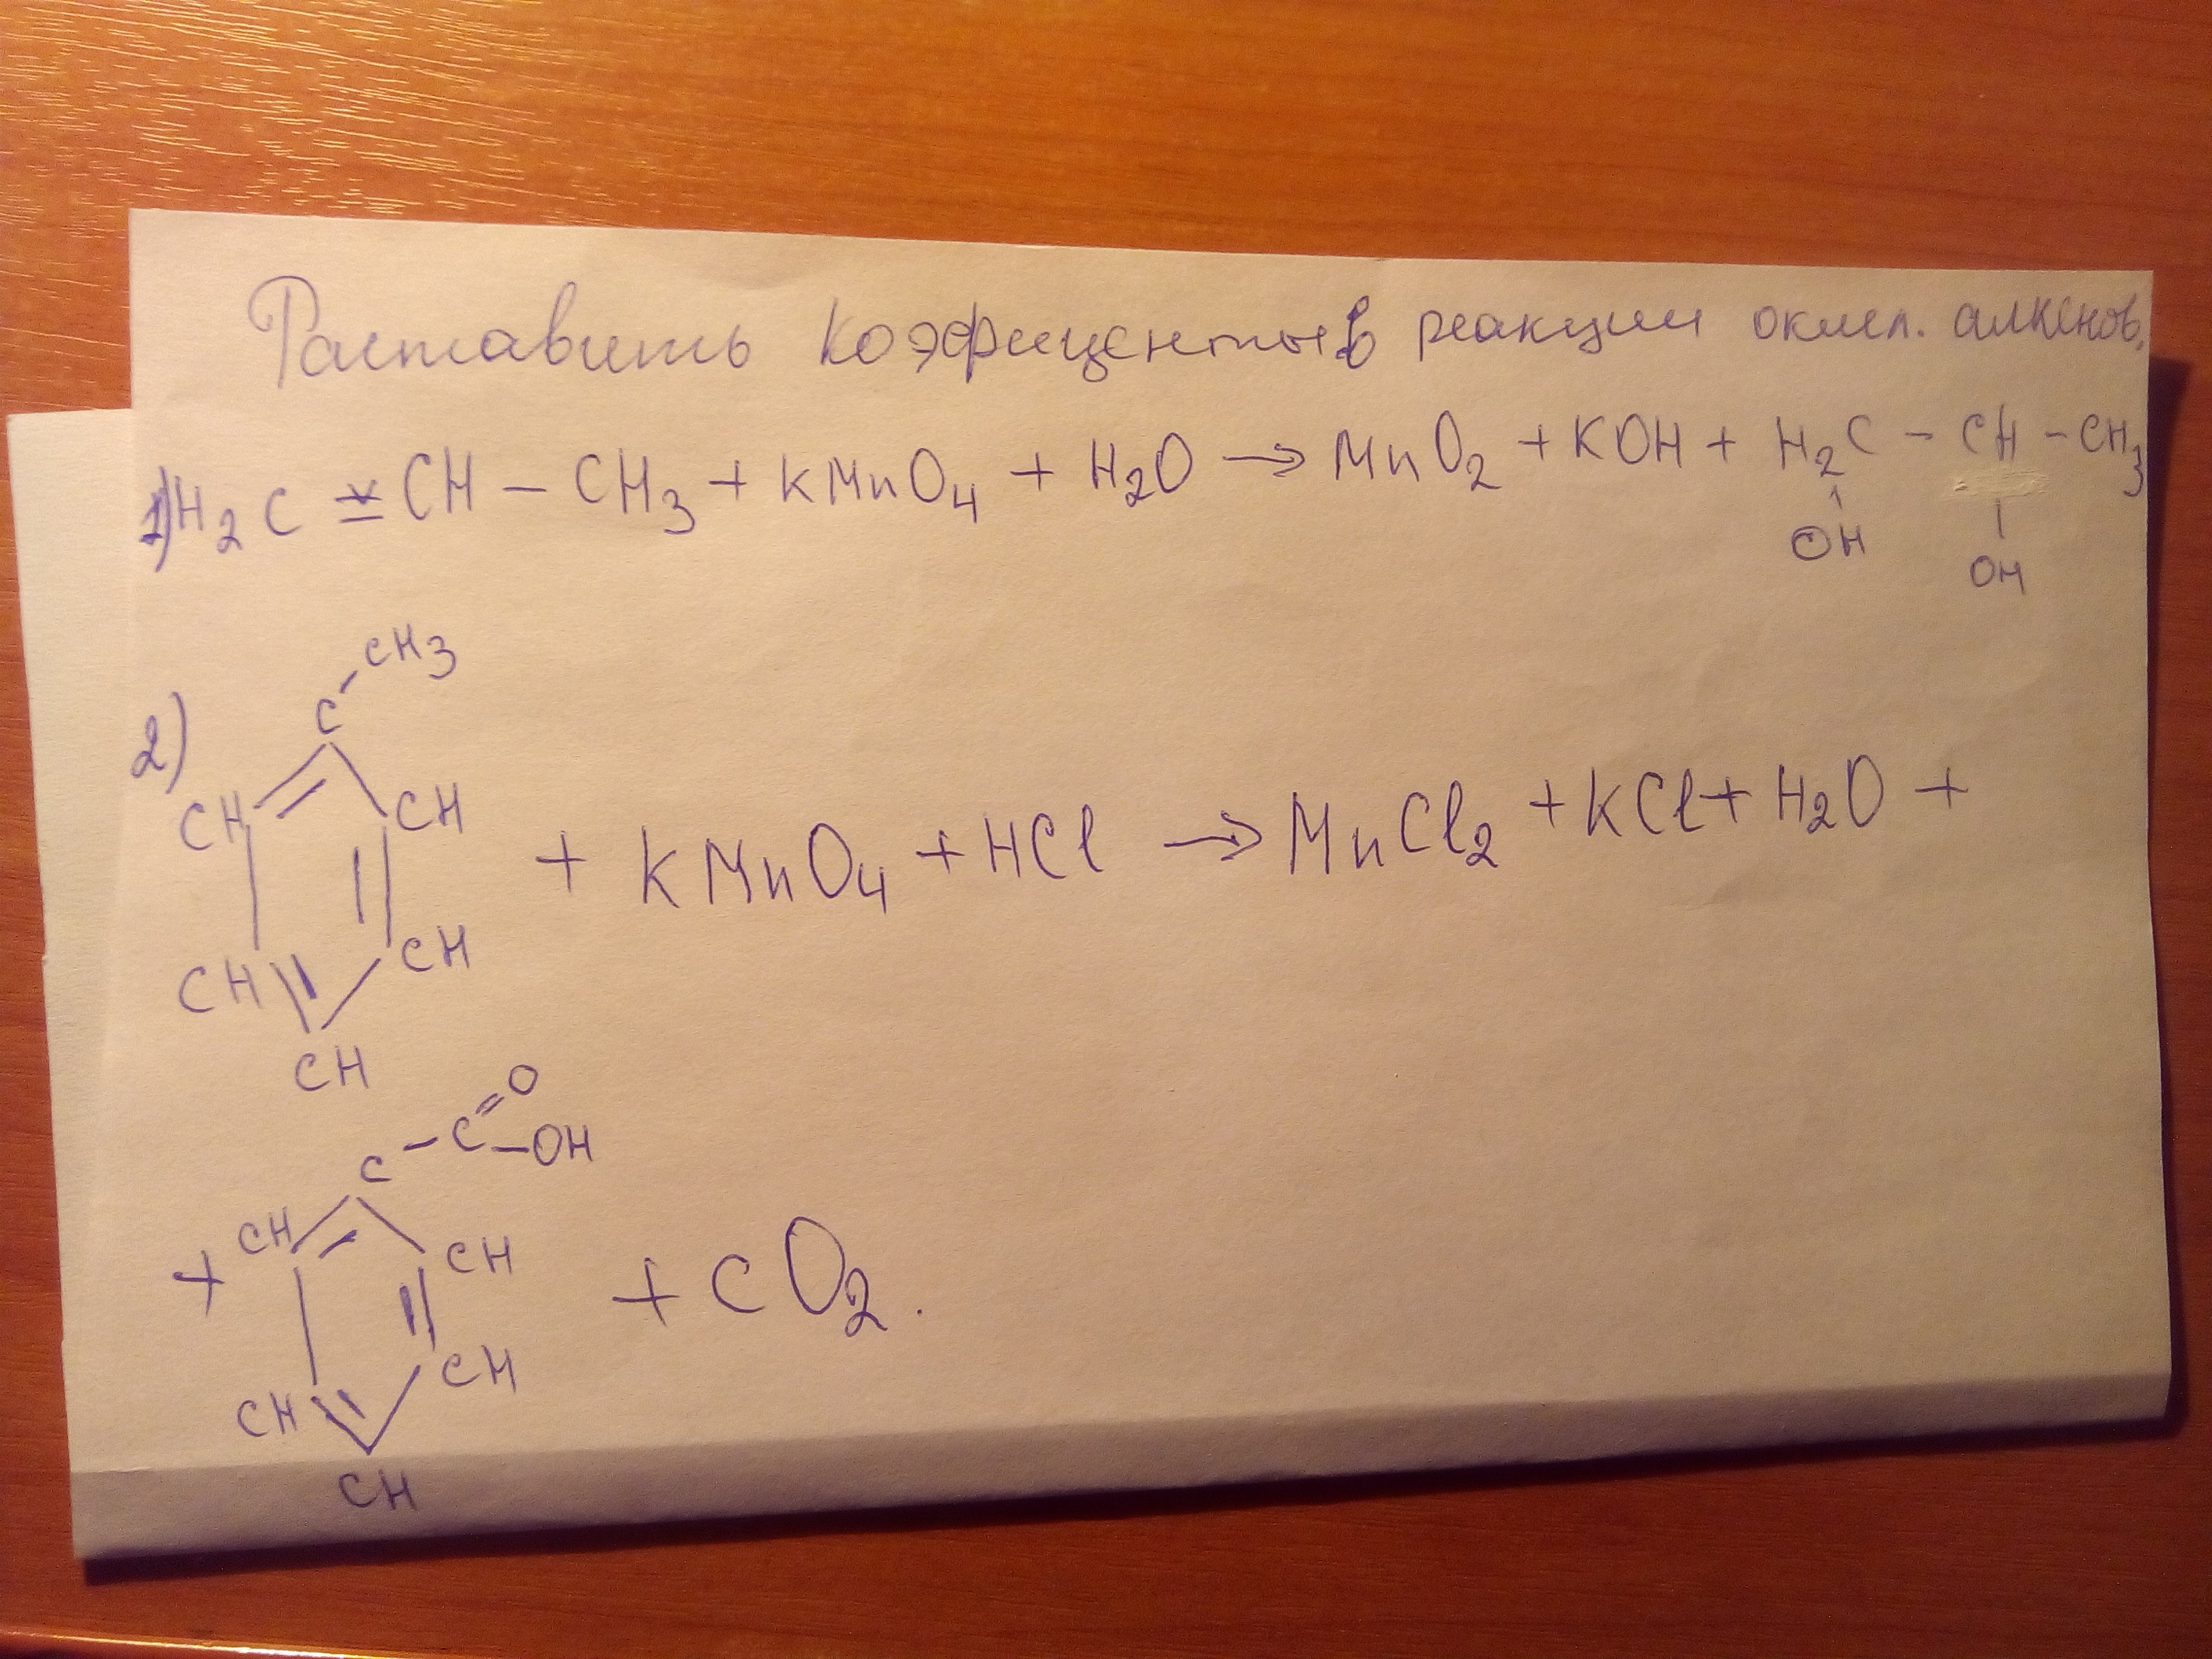 Раставить коэфициенты в реакции окисл. алкенов.
1) H2C = CH – CH3 + KMnO4 + H2O → MnO2 + KOH + H2C – CH – CH3
OH
OH
2)
CH3
C
CH CH
+ KMnO4 + HCl → MnCl2 + KCl + H2O +
CH CH
CH
O
C – C – OH
+ CH CH + CO2.
CH CH
CH